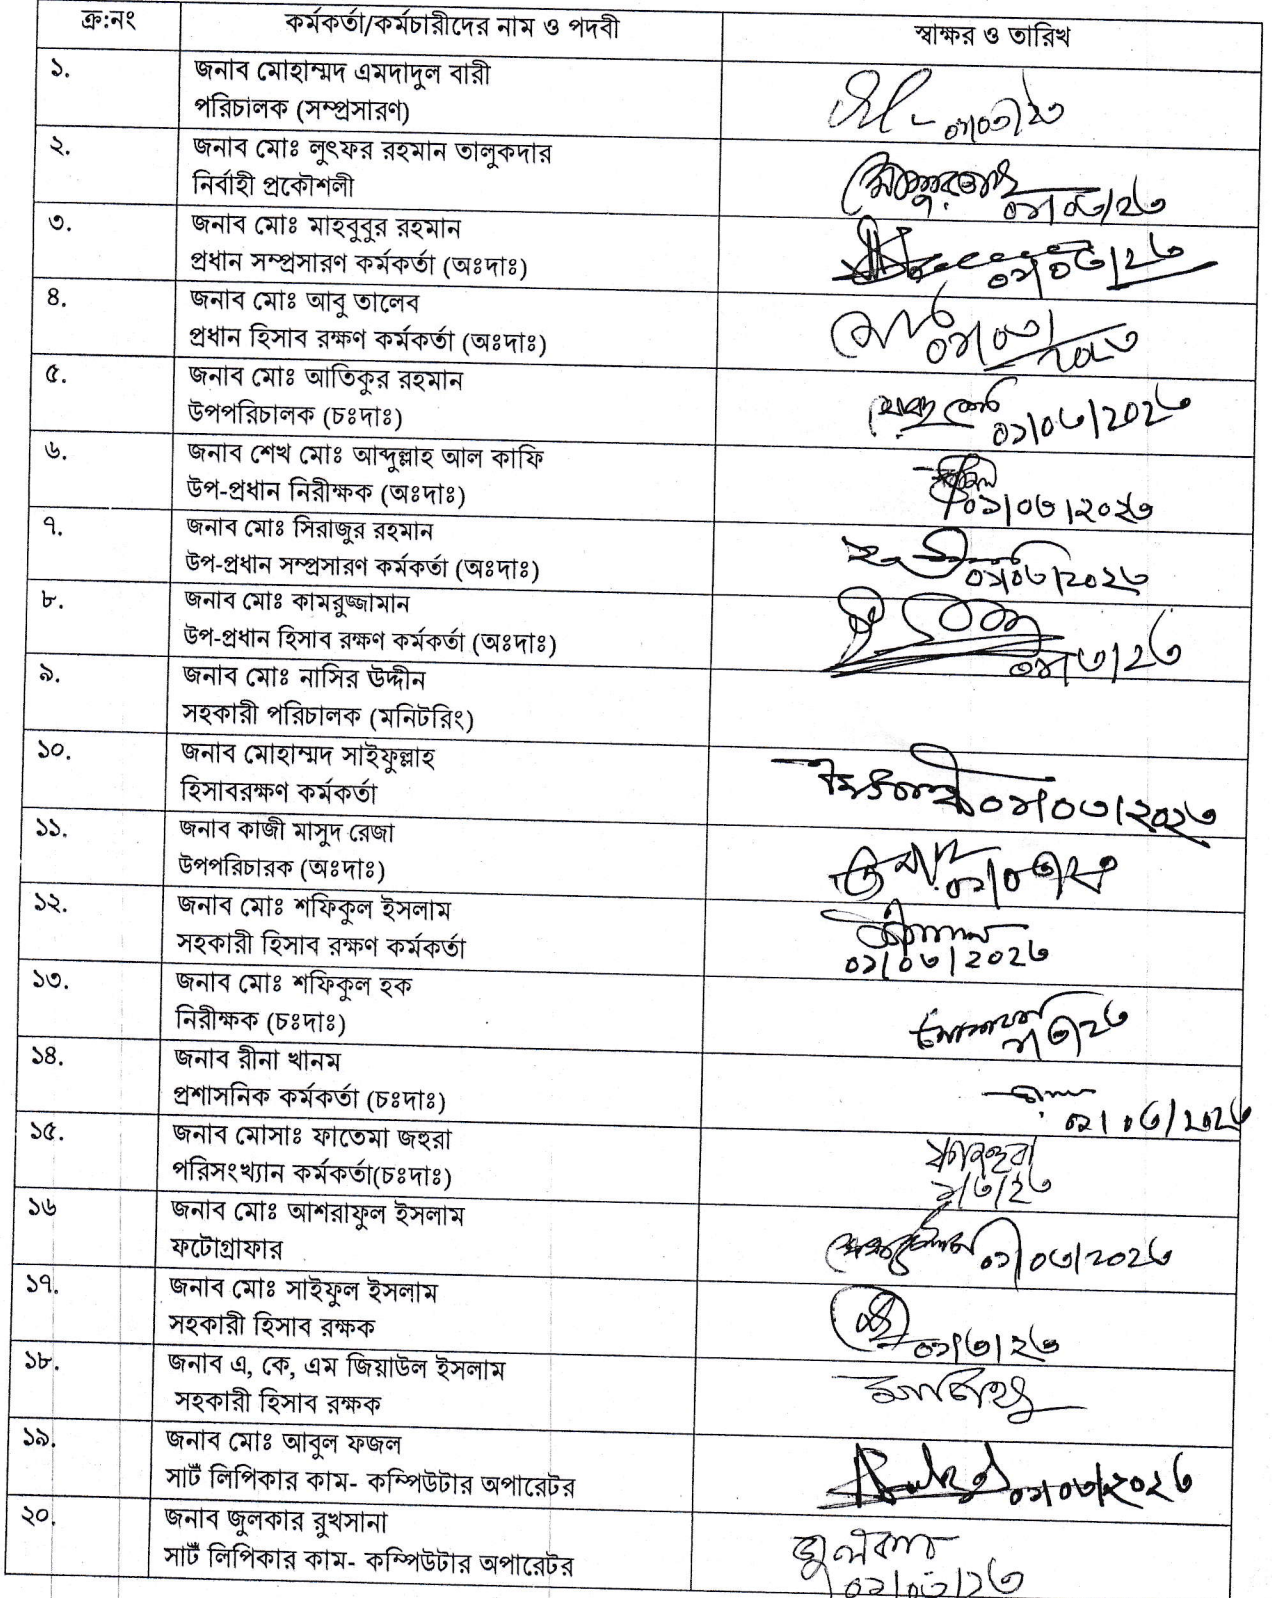 ক্র:নং কর্মকর্তা/কর্মচারীদের নাম ও পদবী স্বাক্ষর ও তারিখ
১. জনাব মোহাম্মদ এমদাদুল বারী
পরিচালক (সম্প্রসারণ)
২. জনাব মোঃ লুৎফর রহমান তালুকদার
নির্বাহী প্রকৌশলী
০১/০৩/২৩
৩. জনাব মোঃ মাহবুবুর রহমান
প্রধান সম্প্রসারণ কর্মকর্তা (অঃদাঃ)
০১/০৩/২৩
৪. জনাব মোঃ আবু তালেব
প্রধান হিসাব রক্ষণ কর্মকর্তা (অঃদাঃ)
০১/০৩/২০২৩
৫. জনাব মোঃ আতিকুর রহমান
উপপরিচালক (চঃদাঃ)
০১/০৩/২০২৩
৬. জনাব শেখ মোঃ আব্দুল্লাহ আল কাফি
উপ-প্রধান নিরীক্ষক (অঃদাঃ)
০১/০৩/২০২৩
৭. জনাব মোঃ সিরাজুর রহমান
উপ-প্রধান সম্প্রসারণ কর্মকর্তা (অঃদাঃ)
০১/০৩/২০২৩
৮. জনাব মোঃ কামরুজ্জামান
উপ-প্রধান হিসাব রক্ষণ কর্মকর্তা (অঃদাঃ)
৯. জনাব মোঃ নাসির উদ্দীন
সহকারী পরিচালক (মনিটরিং)
১০. জনাব মোহাম্মদ সাইফুল্লাহ
হিসাবরক্ষণ কর্মকর্তা
০১/০৩/২০২৩
১১. জনাব কাজী মাসুদ রেজা
উপপরিচারক (অঃদাঃ)
১২. জনাব মোঃ শফিকুল ইসলাম
সহকারী হিসাব রক্ষণ কর্মকর্তা
০১/০৩/২০২৩
১৩. জনাব মোঃ শফিকুল হক
নিরীক্ষক (চঃদাঃ)
১৪. জনাব রীনা খানম
প্রশাসনিক কর্মকর্তা (চঃদাঃ)
০১/০৩/২০২৩
১৫. জনাব মোসাঃ ফাতেমা জহুরা
পরিসংখ্যান কর্মকর্তা(চঃদাঃ)
১/৩/২৩
১৬ জনাব মোঃ আশরাফুল ইসলাম
ফটোগ্রাফার
০১/০৩/২০২৩
১৭. জনাব মোঃ সাইফুল ইসলাম
সহকারী হিসাব রক্ষক
০১/৩/২৩
১৮. জনাব এ, কে, এম জিয়াউল ইসলাম
সহকারী হিসাব রক্ষক
১৯. জনাব মোঃ আবুল ফজল
সার্ট লিপিকার কাম- কম্পিউটার অপারেটর
০১/০৩/২০২৩
২০. জনাব জুলকার রুখসানা
সার্ট লিপিকার কাম- কম্পিউটার অপারেটর
০১/০৩/২৩